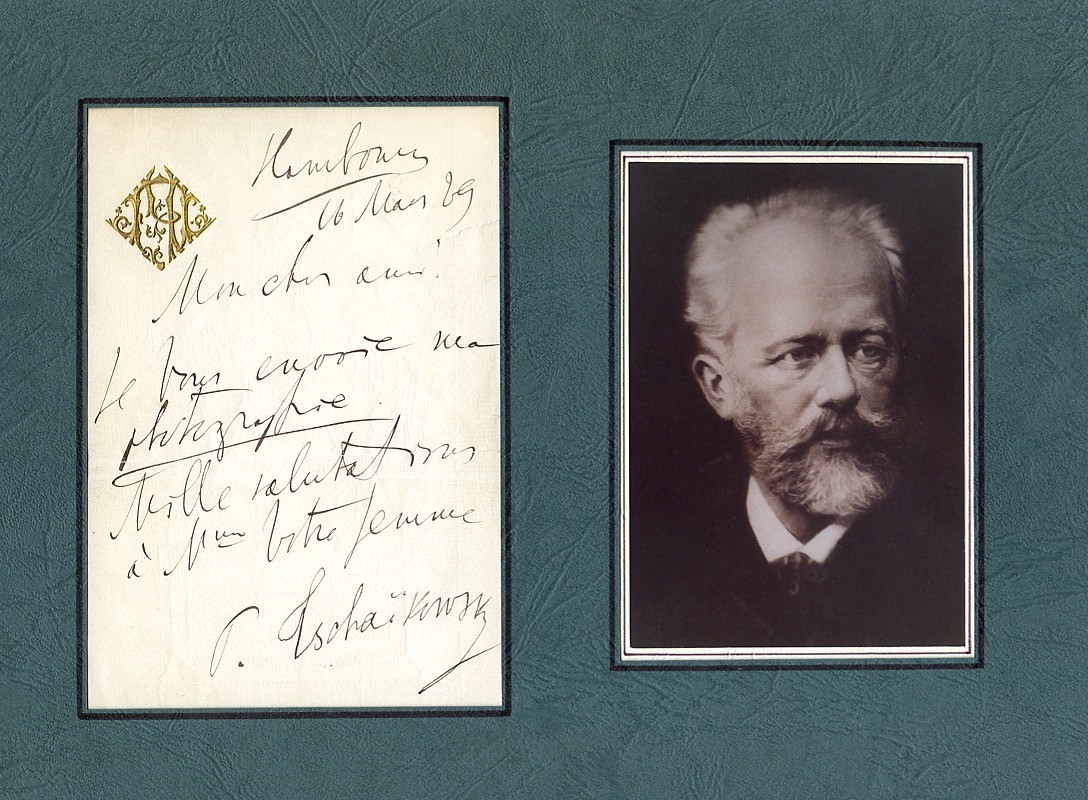 Hambourg
16 Mars 89
Mon cher ami!
Je Vous envoie ma
photographie.
Mille salutations
à Mme Votre femme
P. Tschaïkowsky